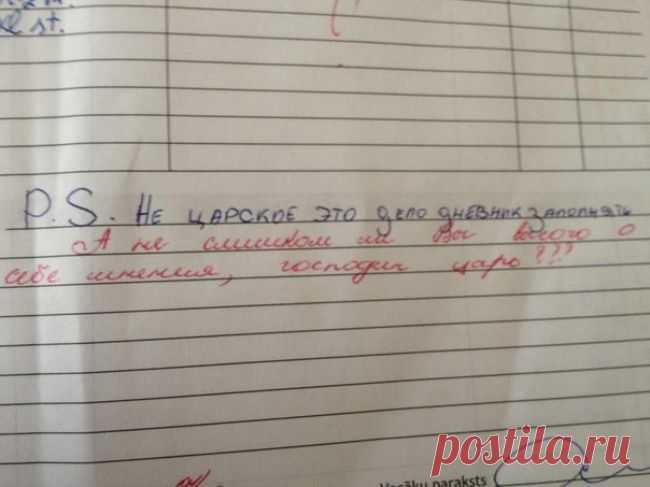 st.
P.S. НЕ ЦАРСКОЕ ЭТО ДЕЛО ДНЕВНИК ЗАПОЛНЯТЬ
А не слишком ли Вы много о
себе мнения, господин царь???
postila.ru
Vecāku paraksts